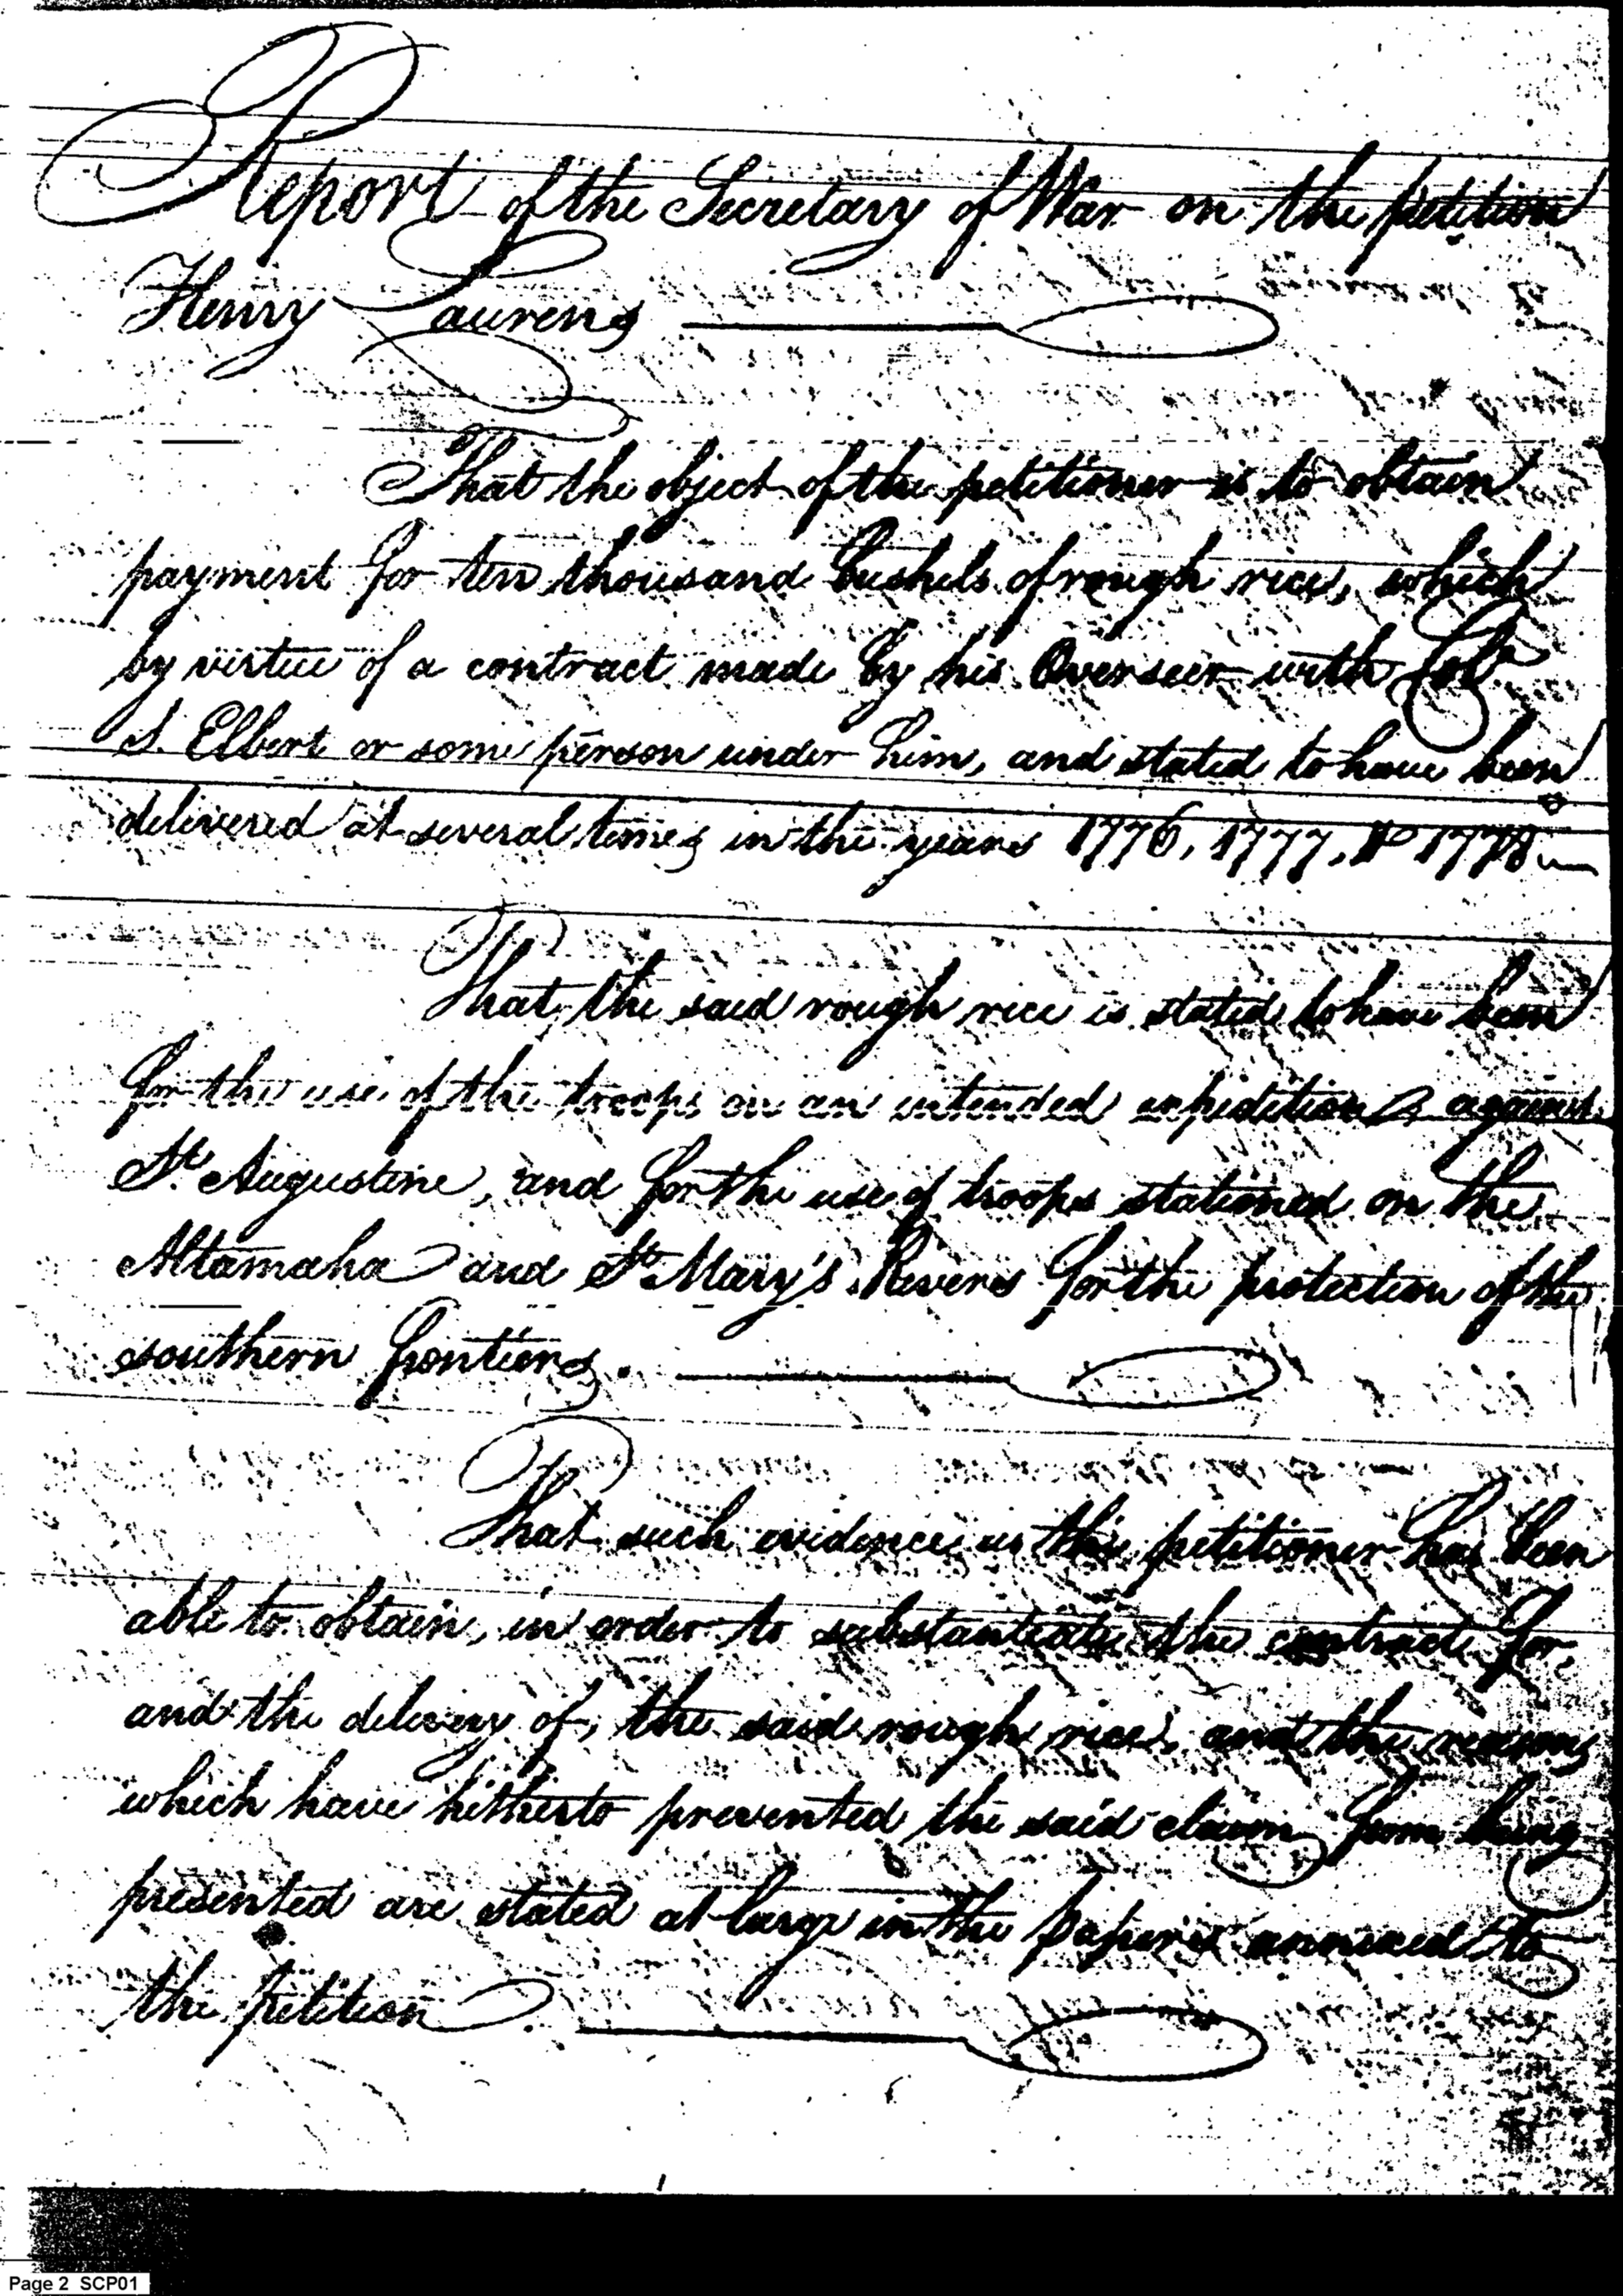 Report of the Secretary of War on the petition
Henry Laurens
That the object of the petitioner is to obtain
payment for ten thousand bushels of rough rice, which
by virtue of a contract made by his Overseer with Col.
S. Elbert or some person under him, and stated to have been
delivered at several times in the years 1776, 1777, & 1778
That the said rough rice is stated to have been
for the use of the troops on an intended expedition against
St. Augustine, and for the use of troops stationed on the
Altamaha and St. Mary's Rivers for the protection of the
southern frontiers.
That such evidence as the petitioner has been
able to obtain, in order to substantiate the contract for,
and the delivery of, the said rough rice, and the reasons
which have hitherto prevented the said claim from being
presented are stated at large in the papers annexed to
the petition.
Page 2 SCP01